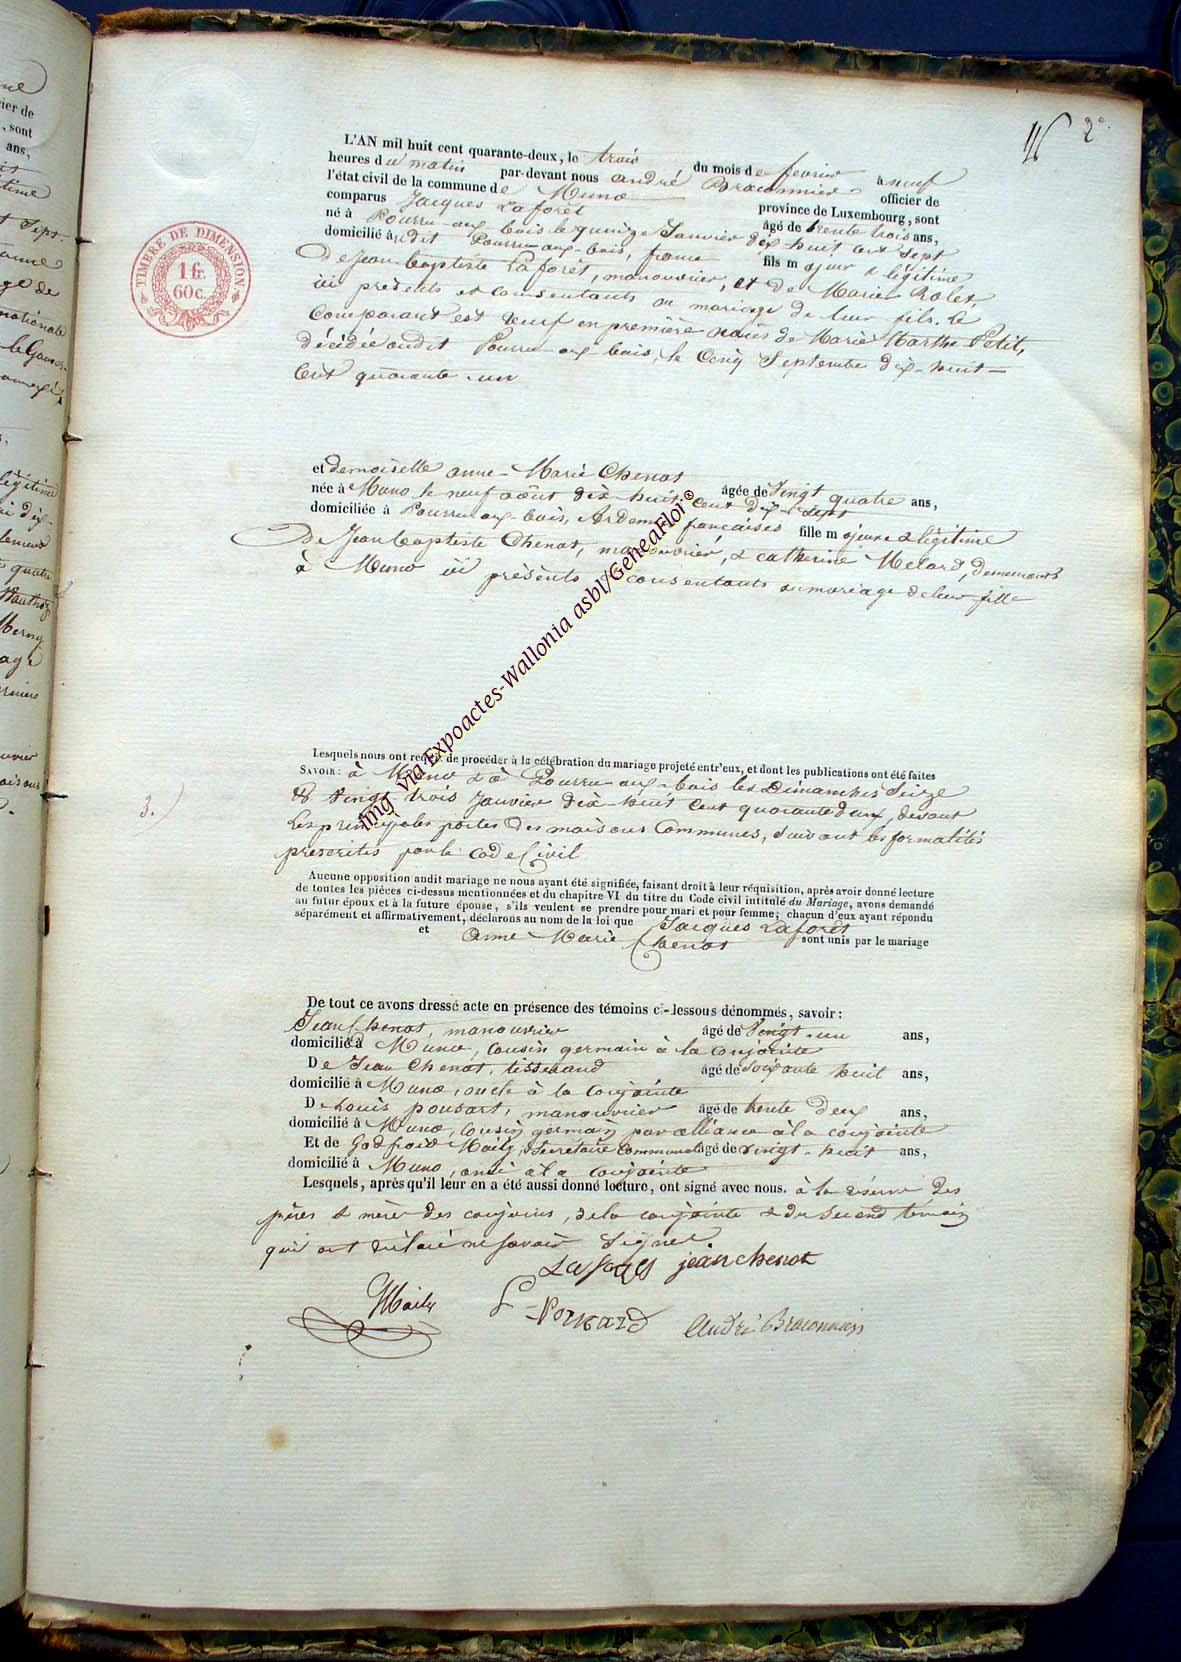 2°
L'AN mil huit cent quarante-deux, le trois du mois de février à neuf
heures du matin par-devant nous andré Braconnier officier de
l'état civil de la commune de Muno province de Luxembourg, sont
comparus Jacques Laforêt âgé de trente trois ans,
né à Pourru-aux-bois le quinze Janvier dix-huit cent Sept
domicilié audit Pourru-aux-bois, france fils majeur & légitime
De Jean-baptiste Laforêt, manouvrier, et de Marie Rolet
ici présents et consentants au mariage de leur fils. Le
Comparant est veuf en première noces de Marie Marthe Petit,
décédée audit Pourru-aux-bois, le cinq Septembre dix-huit-
Cent quarante-un
TIMBRE DE DIMENSION
1 fr.
60 c.
et demoiselle anne-Marie Chenot âgée de Vingt quatre ans,
née à Muno le neuf août dix-huit Cent dix-Sept
domiciliée à Pourru-aux-bois, Ardennes françaises fille majeure & légitime
De Jean baptiste Chenot, manouvrier, & catherine Melard, demeurants
à Muno ici présents & consentants au mariage de leur fille
img via Expoactes-Wallonia asbl/GeneaFloi©
Lesquels nous ont requis de procéder à la célébration du mariage projeté entr'eux, et dont les publications ont été faites
SAVOIR: à Muno & à Pourru-aux-bois les Dimanches Seize
& Vingt-trois Janvier dix-huit Cent quarante deux, devant
Les principales portes des maisons Communes, suivant les formalités
prescrites par le code Civil
3.
Aucune opposition audit mariage ne nous ayant été signifiée, faisant droit à leur réquisition, après avoir donné lecture
de toutes les pièces ci-dessus mentionnées et du chapitre VI du titre du Code civil intitulé du Mariage, avons demandé
au futur époux et à la future épouse, s'ils veulent se prendre pour mari et pour femme; chacun d'eux ayant répondu
séparément et affirmativement, déclarons au nom de la loi que Jacques Laforêt
et Anne Marie Chenot sont unis par le mariage
De tout ce avons dressé acte en présence des témoins ci-dessous dénommés, savoir:
Jean Chenot, manouvrier âgé de Vingt-un ans,
domicilié à Muno, cousin germain à la conjointe
De Jean Chenot, tisserand âgé de Soixante huit ans,
domicilié à Muno, oncle à la conjointe
De Louis ponsart, manouvrier âgé de trente deux ans,
domicilié à Muno, Cousin germain par alliance à la conjointe
Et de Godfroid Maily, Secrétaire Communal âgé de vingt-huit ans,
domicilié à Muno, ami à la conjointe
Lesquels, après qu'il leur en a été aussi donné lecture, ont signé avec nous. à la réserve des
pères & mères des conjoints, de la conjointe & du Second témoin
qui ont déclaré ne savoir Signer.
jean chenot
Maily
André Braconnier